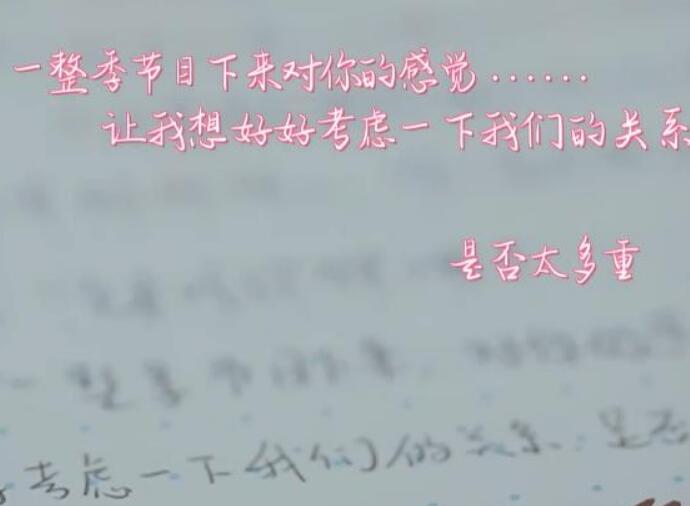 一整季节目下来对你的感觉......
让我想好好考虑一下我们的关系
是否太多重
一整季节目下来，对你的
考虑一下我们的关系，是否